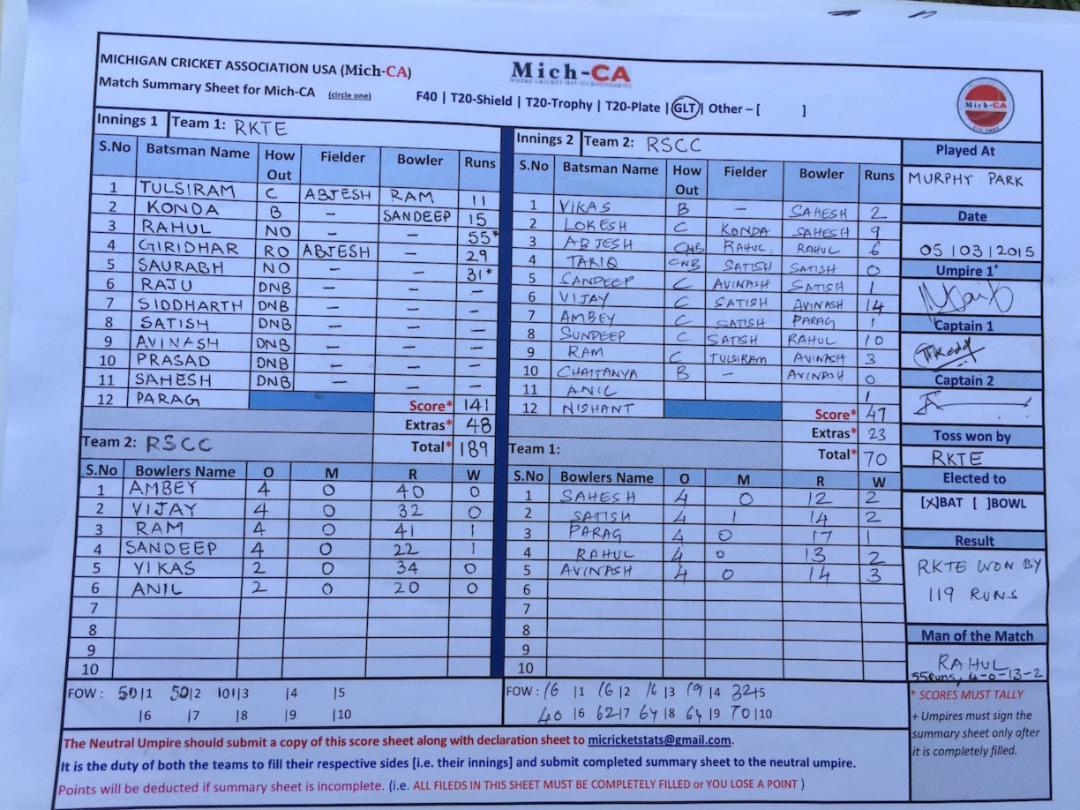 MICHIGAN CRICKET ASSOCIATION USA (Mich-CA)
Mich-CA
Match Summary Sheet for Mich-CA (circle one) F40 | T20-Shield | T20-Trophy | T20-Plate | GLT | Other – [ ]
Mich-CA
Innings 1 Team 1: RKTE
S.No Batsman Name How Out Fielder Bowler Runs
1 TULSIRAM C ABJESH RAM 11
2 KONDA B - SANDEEP 15
3 RAHUL NO - - 55*
4 GIRIDHAR RO ABJESH - 29
5 SAURABH NO - - 31*
6 RAJU DNB - - -
7 SIDDHARTH DNB - - -
8 SATISH DNB - - -
9 AVINASH DNB - - -
10 PRASAD DNB - - -
11 SAHESH DNB - - -
12 PARAG Score* 141
Extras* 48
Total* 189
Team 2: RSCC
S.No Bowlers Name O M R W
1 AMBEY 4 0 40 0
2 VIJAY 4 0 32 0
3 RAM 4 0 41 1
4 SANDEEP 4 0 22 1
5 VIKAS 2 0 34 0
6 ANIL 2 0 20 0
7
8
9
10
FOW : 50|1 50|2 101|3 |4 |5
|6 |7 |8 |9 |10
Innings 2 Team 2: RSCC
S.No Batsman Name How Out Fielder Bowler Runs
1 VIKAS B - SAHESH 2
2 LOKESH C KONDA SAHESH 9
3 ABJESH CNB RAHUL RAHUL 6
4 TARIQ CNB SATISH SATISH 0
5 SANDEEP C AVINASH SATISH 1
6 VIJAY C SATISH AVINASH 14
7 AMBEY C SATISH PARAG 1
8 SUNDEEP C SATISH RAHUL 10
9 RAM C TULSIRAM AVINASH 3
10 CHAITANYA B - AVINASH 0
11 ANIL 1
12 NISHANT Score* 47
Extras* 23
Total* 70
Team 1:
S.No Bowlers Name O M R W
1 SAHESH 4 0 12 2
2 SATISH 4 1 14 2
3 PARAG 4 0 17 1
4 RAHUL 4 0 13 2
5 AVINASH 4 0 14 3
6
7
8
9
10
FOW : 16 |1 16|2 16|3 19|4 32|5
40 |6 62|7 64|8 64|9 70|10
Played At
MURPHY PARK
Date
05|03|2015
Umpire 1+
Captain 1
Captain 2
Toss won by
RKTE
Elected to
[X]BAT [ ]BOWL
Result
RKTE WON BY
119 RUNS
Man of the Match
RAHUL
55runs, 4-0-13-2
* SCORES MUST TALLY
+ Umpires must sign the
summary sheet only after
it is completely filled.
The Neutral Umpire should submit a copy of this score sheet along with declaration sheet to micricketstats@gmail.com.
It is the duty of both the teams to fill their respective sides [i.e. their innings] and submit completed summary sheet to the neutral umpire.
Points will be deducted if summary sheet is incomplete. (i.e. ALL FILEDS IN THIS SHEET MUST BE COMPLETELY FILLED or YOU LOSE A POINT )